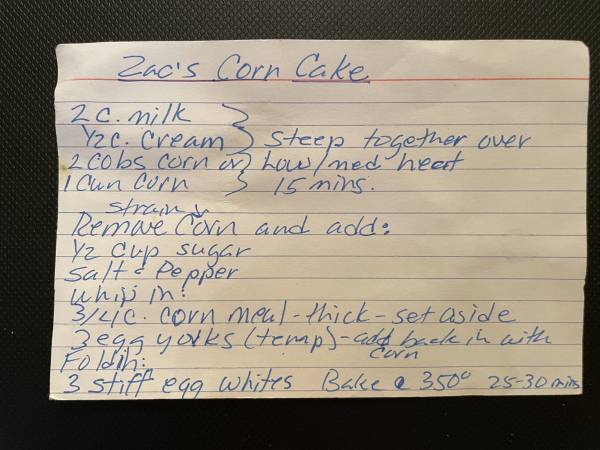 Zac's Corn Cake
2 c. milk
1/2 c. cream } steep together over
2 cobs corn or } Low/med heat
1 can corn } 15 mins.
strain &
Remove Corn and add:
1/2 cup sugar
Salt & Pepper
Whip in:
3/4 c. corn meal - thick - set aside
3 egg yolks (temp) - add back in with
corn
Fold in:
3 stiff egg whites Bake @ 350° 25-30 mins